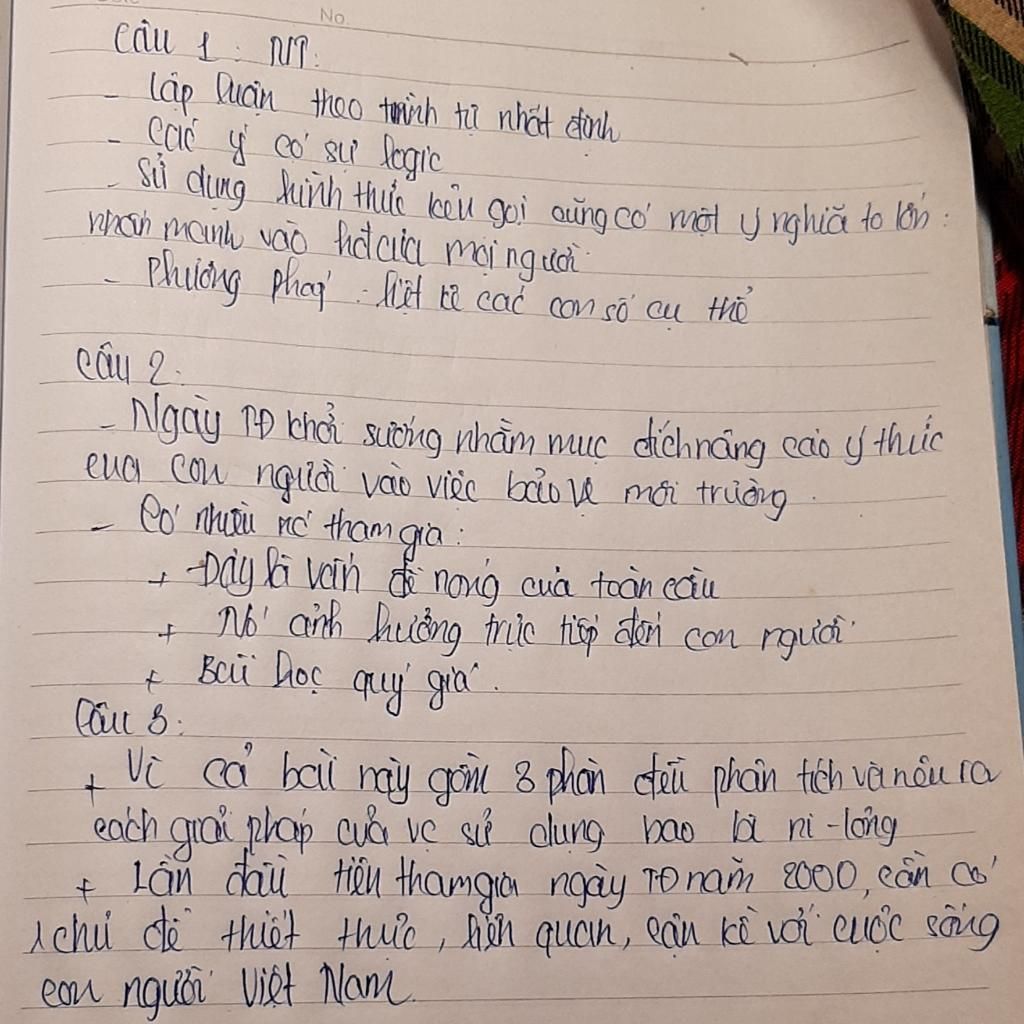 No.
Câu 1: NT:
- Lập luận theo trình tự nhất định
- Các ý có sự logic
- Sử dụng hình thức kêu gọi cũng có một ý nghĩa to lớn:
nhấn mạnh vào hđ của mọi người
- Phương pháp: liệt kê các con số cụ thể
Câu 2:
- Ngày TĐ khởi sướng nhằm mục đích nâng cao ý thức
của con người vào việc bảo vệ môi trường.
- Có nhiều nc tham gia:
+ Đây là vấn đề nóng của toàn cầu
+ Nó ảnh hưởng trực tiếp đến con người
+ Bài học quý giá.
Câu 3:
+ Vì cả bài này gồm 3 phần đều phân tích và nêu ra
cách giải pháp của vc sử dụng bao bì ni-lông
+ Lần đầu tiên tham gia ngày TĐ năm 2000, cần có
1 chủ đề thiết thực, liên quan, cận kề với cuộc sống
con người Việt Nam.